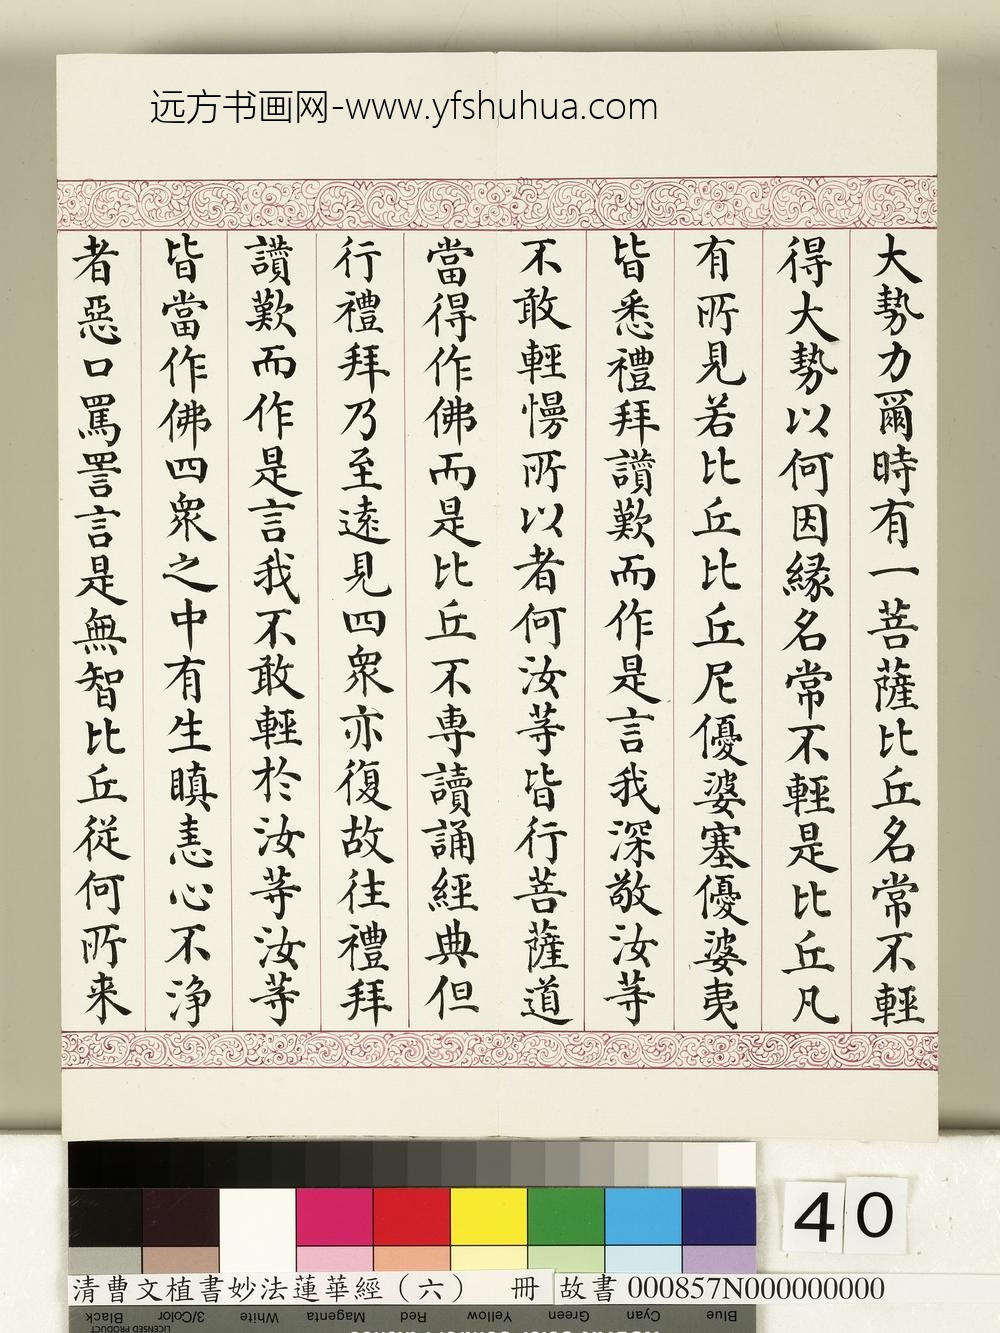 远方书画网-www.yfshuhua.com
大勢力爾時有一菩薩比丘名常不輕
得大勢以何因緣名常不輕是比丘凡
有所見若比丘比丘尼優婆塞優婆夷
皆悉禮拜讚歎而作是言我深敬汝等
不敢輕慢所以者何汝等皆行菩薩道
當得作佛而是比丘不專讀誦經典但
行禮拜乃至遠見四眾亦復故往禮拜
讚歎而作是言我不敢輕於汝等汝等
皆當作佛四眾之中有生瞋恚心不淨
者惡口罵詈言是無智比丘從何所来
40
清曹文植書妙法蓮華經（六） 冊 故書 000857N000000000
Black 3/Color White Magenta Red Yellow Green Cyan Blue
LICENSED PRODUCT